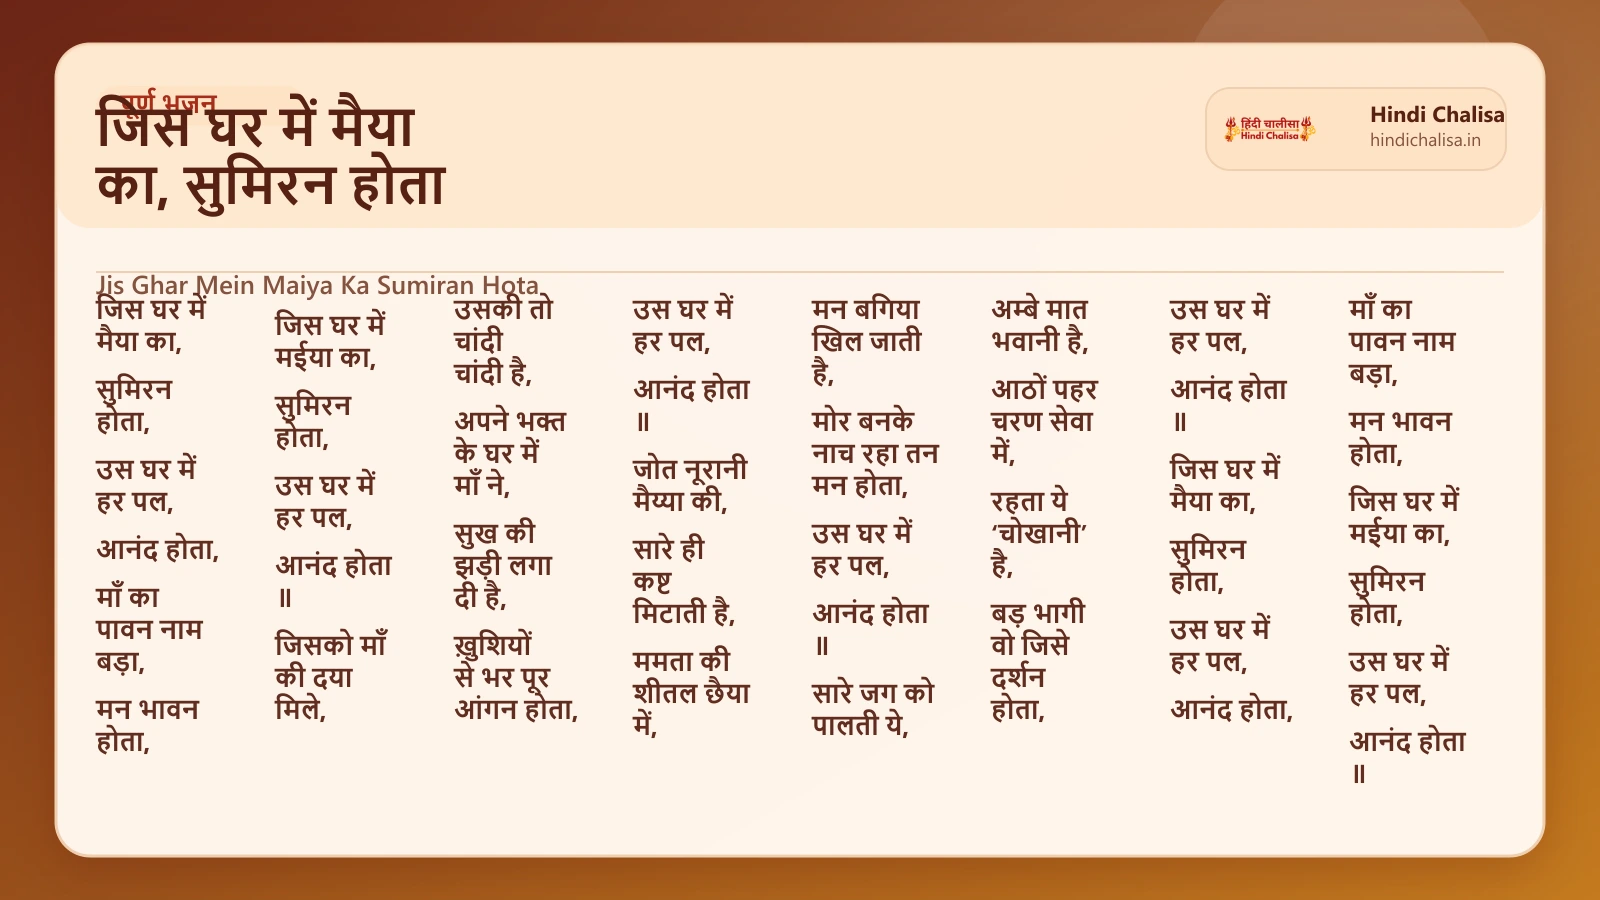 पूर्ण भजन
जिस घर में मैया
का, सुमिरन होता
हिंदी चालीसा
Hindi Chalisa
Hindi Chalisa
hindichalisa.in
Jis Ghar Mein Maiya Ka Sumiran Hota
जिस घर में
मैया का,
सुमिरन
होता,
उस घर में
हर पल,
आनंद होता,
माँ का
पावन नाम
बड़ा,
मन भावन
होता,
जिस घर में
मईया का,
सुमिरन
होता,
उस घर में
हर पल,
आनंद होता
॥
जिसको माँ
की दया
मिले,
उसकी तो
चांदी
चांदी है,
अपने भक्त
के घर में
माँ ने,
सुख की
झड़ी लगा
दी है,
ख़ुशियों
से भर पूर
आंगन होता,
उस घर में
हर पल,
आनंद होता
॥
जोत नूरानी
मैय्या की,
सारे ही
कष्ट
मिटाती है,
ममता की
शीतल छैया
में,
मन बगिया
खिल जाती
है,
मोर बनके
नाच रहा तन
मन होता,
उस घर में
हर पल,
आनंद होता
॥
सारे जग को
पालती ये,
अम्बे मात
भवानी है,
आठों पहर
चरण सेवा
में,
रहता ये
‘चोखानी’
है,
बड़ भागी
वो जिसे
दर्शन
होता,
उस घर में
हर पल,
आनंद होता
॥
जिस घर में
मैया का,
सुमिरन
होता,
उस घर में
हर पल,
आनंद होता,
माँ का
पावन नाम
बड़ा,
मन भावन
होता,
जिस घर में
मईया का,
सुमिरन
होता,
उस घर में
हर पल,
आनंद होता
॥